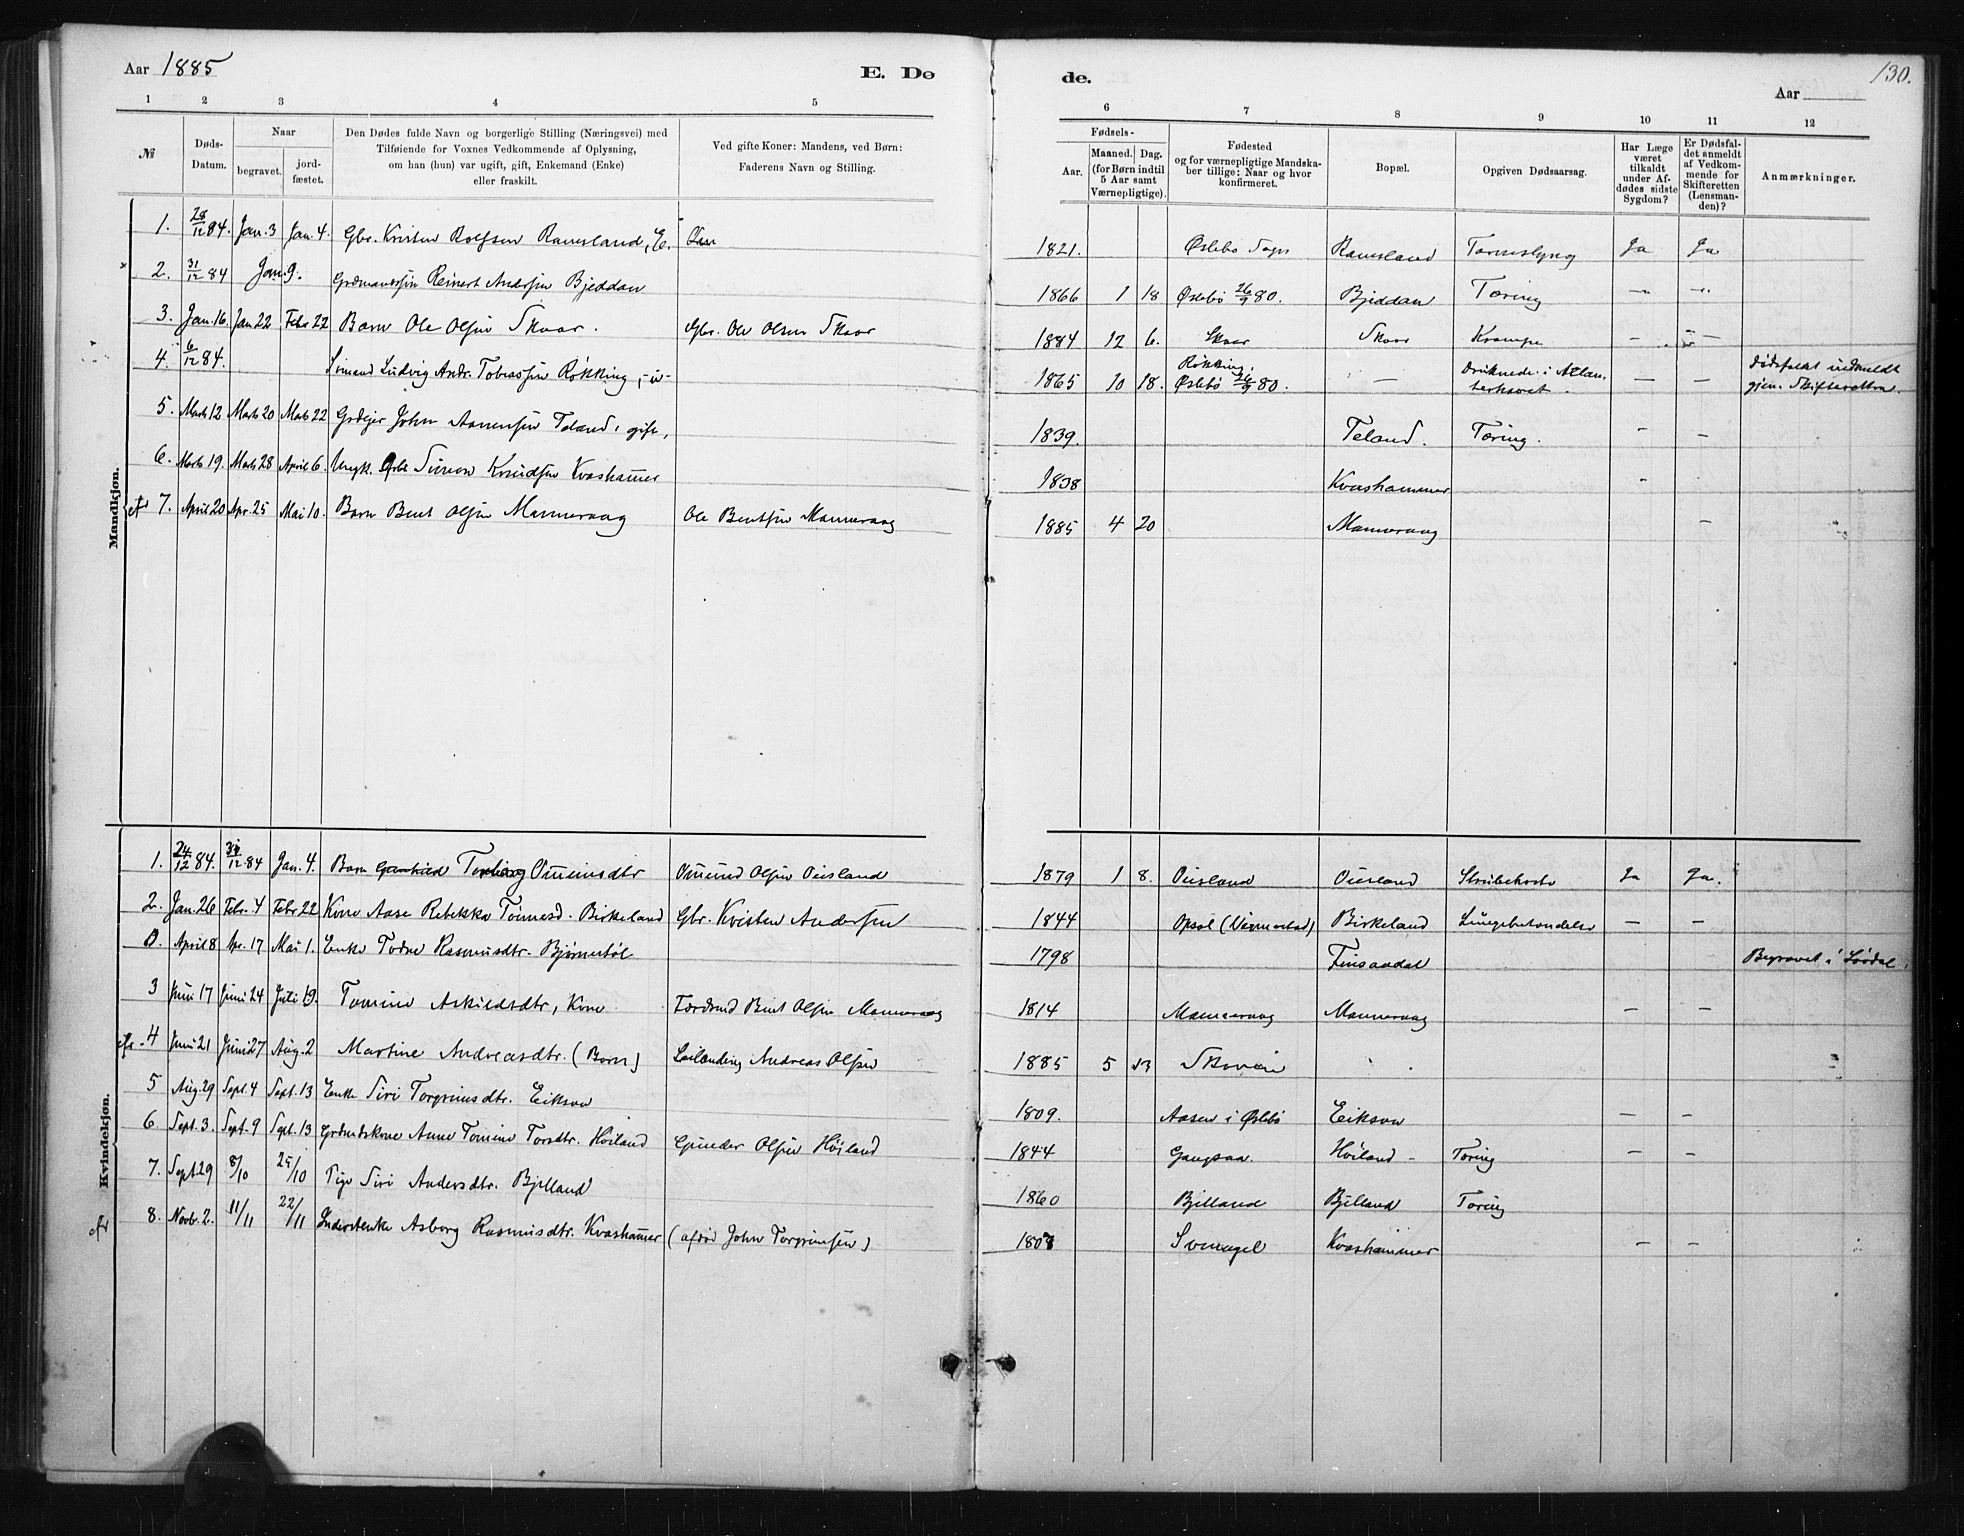 Aar 1885
E. Dø
de.
130.
Aar
1 2 3 4 5
6 7 8 9 10 11 12
№
Døds-
Datum.
Naar
begravet.
jord-
fæstet.
Den Dødes fulde Navn og borgerlige Stilling (Næringsvei) med
Tilføiende for Voxnes Vedkommende af Oplysning,
om han (hun) var ugift, gift, Enkemand (Enke)
eller fraskilt.
Ved gifte Koner: Mandens, ved Børn:
Faderens Navn og Stilling.
Fødsels-
Aar.
Maaned. Dag.
(for Børn indtil
5 Aar samt
Værnepligtige).
Fødested
og for værnepligtige Mandska-
ber tillige: Naar og hvor
konfirmeret.
Bopæl.
Opgiven Dødsaarsag.
Har Læge
været
tilkaldt
under Af-
dødes sidste
Sygdom?
Er Dødsfal-
det anmeldt
af Vedkom-
mende for
Skifteretten
(Lensman-
den)?
Anmærkninger.
Mandkjøn.
1. 28/12 84. Jan. 3 Jan. 4. Gbr. Rolfsen Ramsland, E. 1821. Øslebø Sogn Ramsland Ja Ja
2. 31/12 84 Jan 9. Reinert Andrsen Bjeddan 1866 1 18 Øslebø 26/9 80. Bjeddan Tæring — „
3. Jan. 16. Jan 22 Febr 22 Barn Ole Olsen Skaar. Gbr. Ole Olsen Skaar 1884 12 6. Skaar Skaar Krampe — —
4. 6/12 84. Sømand Ludvig Andr. Tobiassen Røkking, 1865 10 18. Røkking, Øslebø 26/9 80. — Druknede i Atlan-
terhavet. — — Dødsfaldet indmeldt
gjen. Skifteretten.
5. Marts 12 Marts 20 Marts 22 Grdejer John Aanensen Teland, gift, 1839. Teland. Tæring. — —
6. Marts 19. Marts 28 April 6. Ungk. Simon Knudsen Kvashammer 1838 Kvashammer -
7. April 20 Apr. 25 Mai 10. Barn Bent Olsen Manneraag Ole Bentsen Manneraag 1885 4 20 Manneraag —
Kvindekjøn.
1. 24/12 84. 12 84 Jan. 4. Barn Torborg 1879 1 8. Strubehoste Ja Ja.
2. Jan. 26 Febr. 4 Febr 22 Kone Aase Rebekka Tønnesd. Birkeland Gbr. Kristen Andersen 1844 Opsal Birkeland Lungebetændelse — —
0. April 8 Apr. 17 Mai 1. Enke Todne Rasmusdtr. Bjørnebøl 1798 Finsaadal Begravet i
3 Juni 17 Juni 24 Juli 19. Tomine Askildsdtr, Kone Bent Olsen Manneraag 1814 Manneraag Manneraag — —
4 Juni 21 Juni 27 Aug. 2 Martine Andreasdtr. (Barn) Andreas Olsen 1885 5 13
5 Aug. 29 Sept. 4 Sept. 13 Enke Siri Torgrimsdtr. Eiksaa 1809. Aasen i Øslebø Eiksaa — —
6 Sept. 3. Sept. 9 Sept. 13 Anne Tomine Torsdtr. Høiland Gunder Olsen Høiland 1844 Høiland - Tæring — —
7. Sept. 29 8/10 25/10 Pige Siri Andersdtr. Bjelland 1860 Bjelland Bjelland Tæring
8. Novb. 2. 11/11 22/11 Inderstenke Asborg Rasmusdtr. Kvashammer (afdød John Torgrimsen) Kvashammer — —